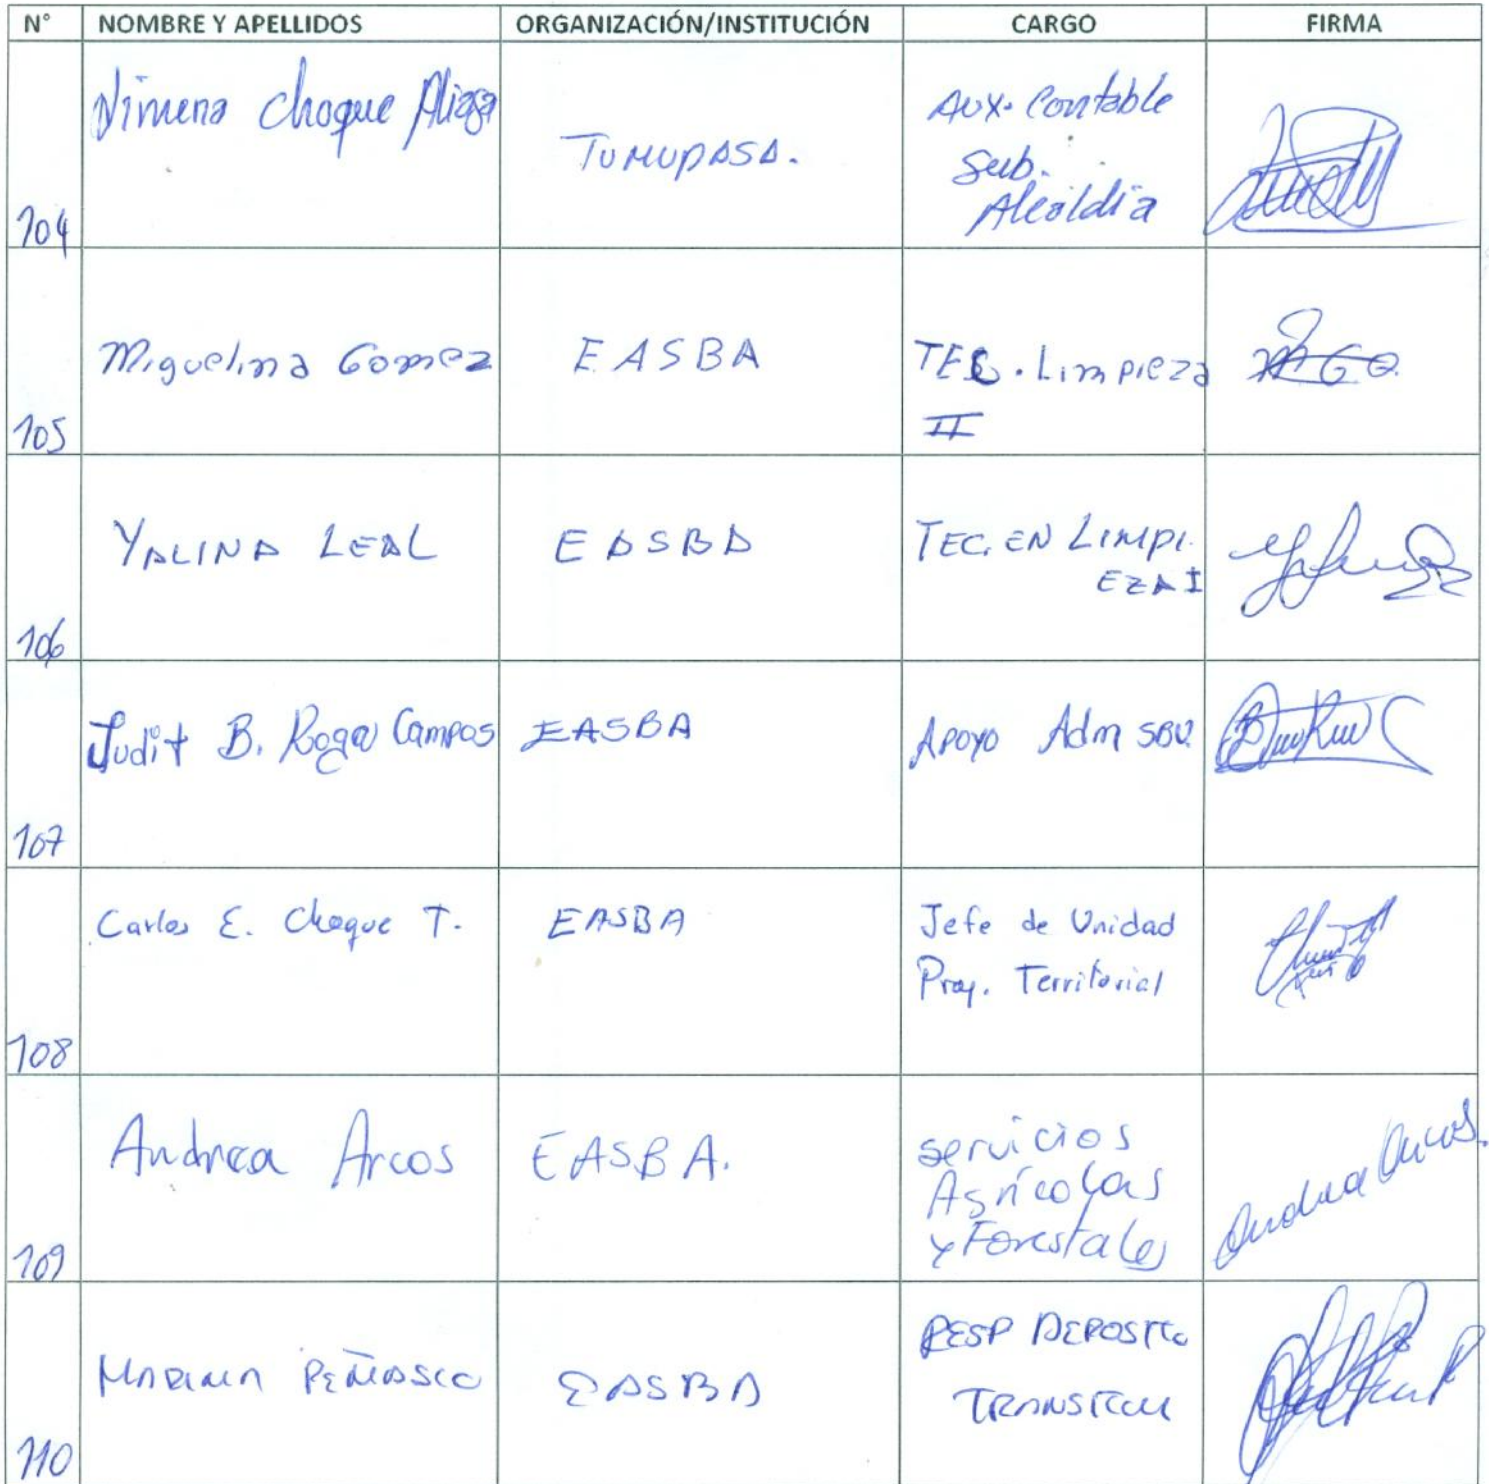 N° NOMBRE Y APELLIDOS ORGANIZACIÓN/INSTITUCIÓN CARGO FIRMA
104 Jimena Choque Aliaga TUMUPASA. AUX. Contable
Sub.
Alcaldía
105 Miguelina Gomez EASBA TEC. Limpieza
II
106 YALINA LEAL EASBA TEC. EN LIMPI.
EZA I
107 Judit B. Roga Campos EASBA APOYO Adm
108 Carlos E. Choque T. EASBA Jefe de Unidad
Proy. Territorial
109 Andrea Arcos EASBA. servicios
Agrícolas
y Forestales
Andrea Arcos.
110 PEÑASCO EASBA RESP DEPOSITO